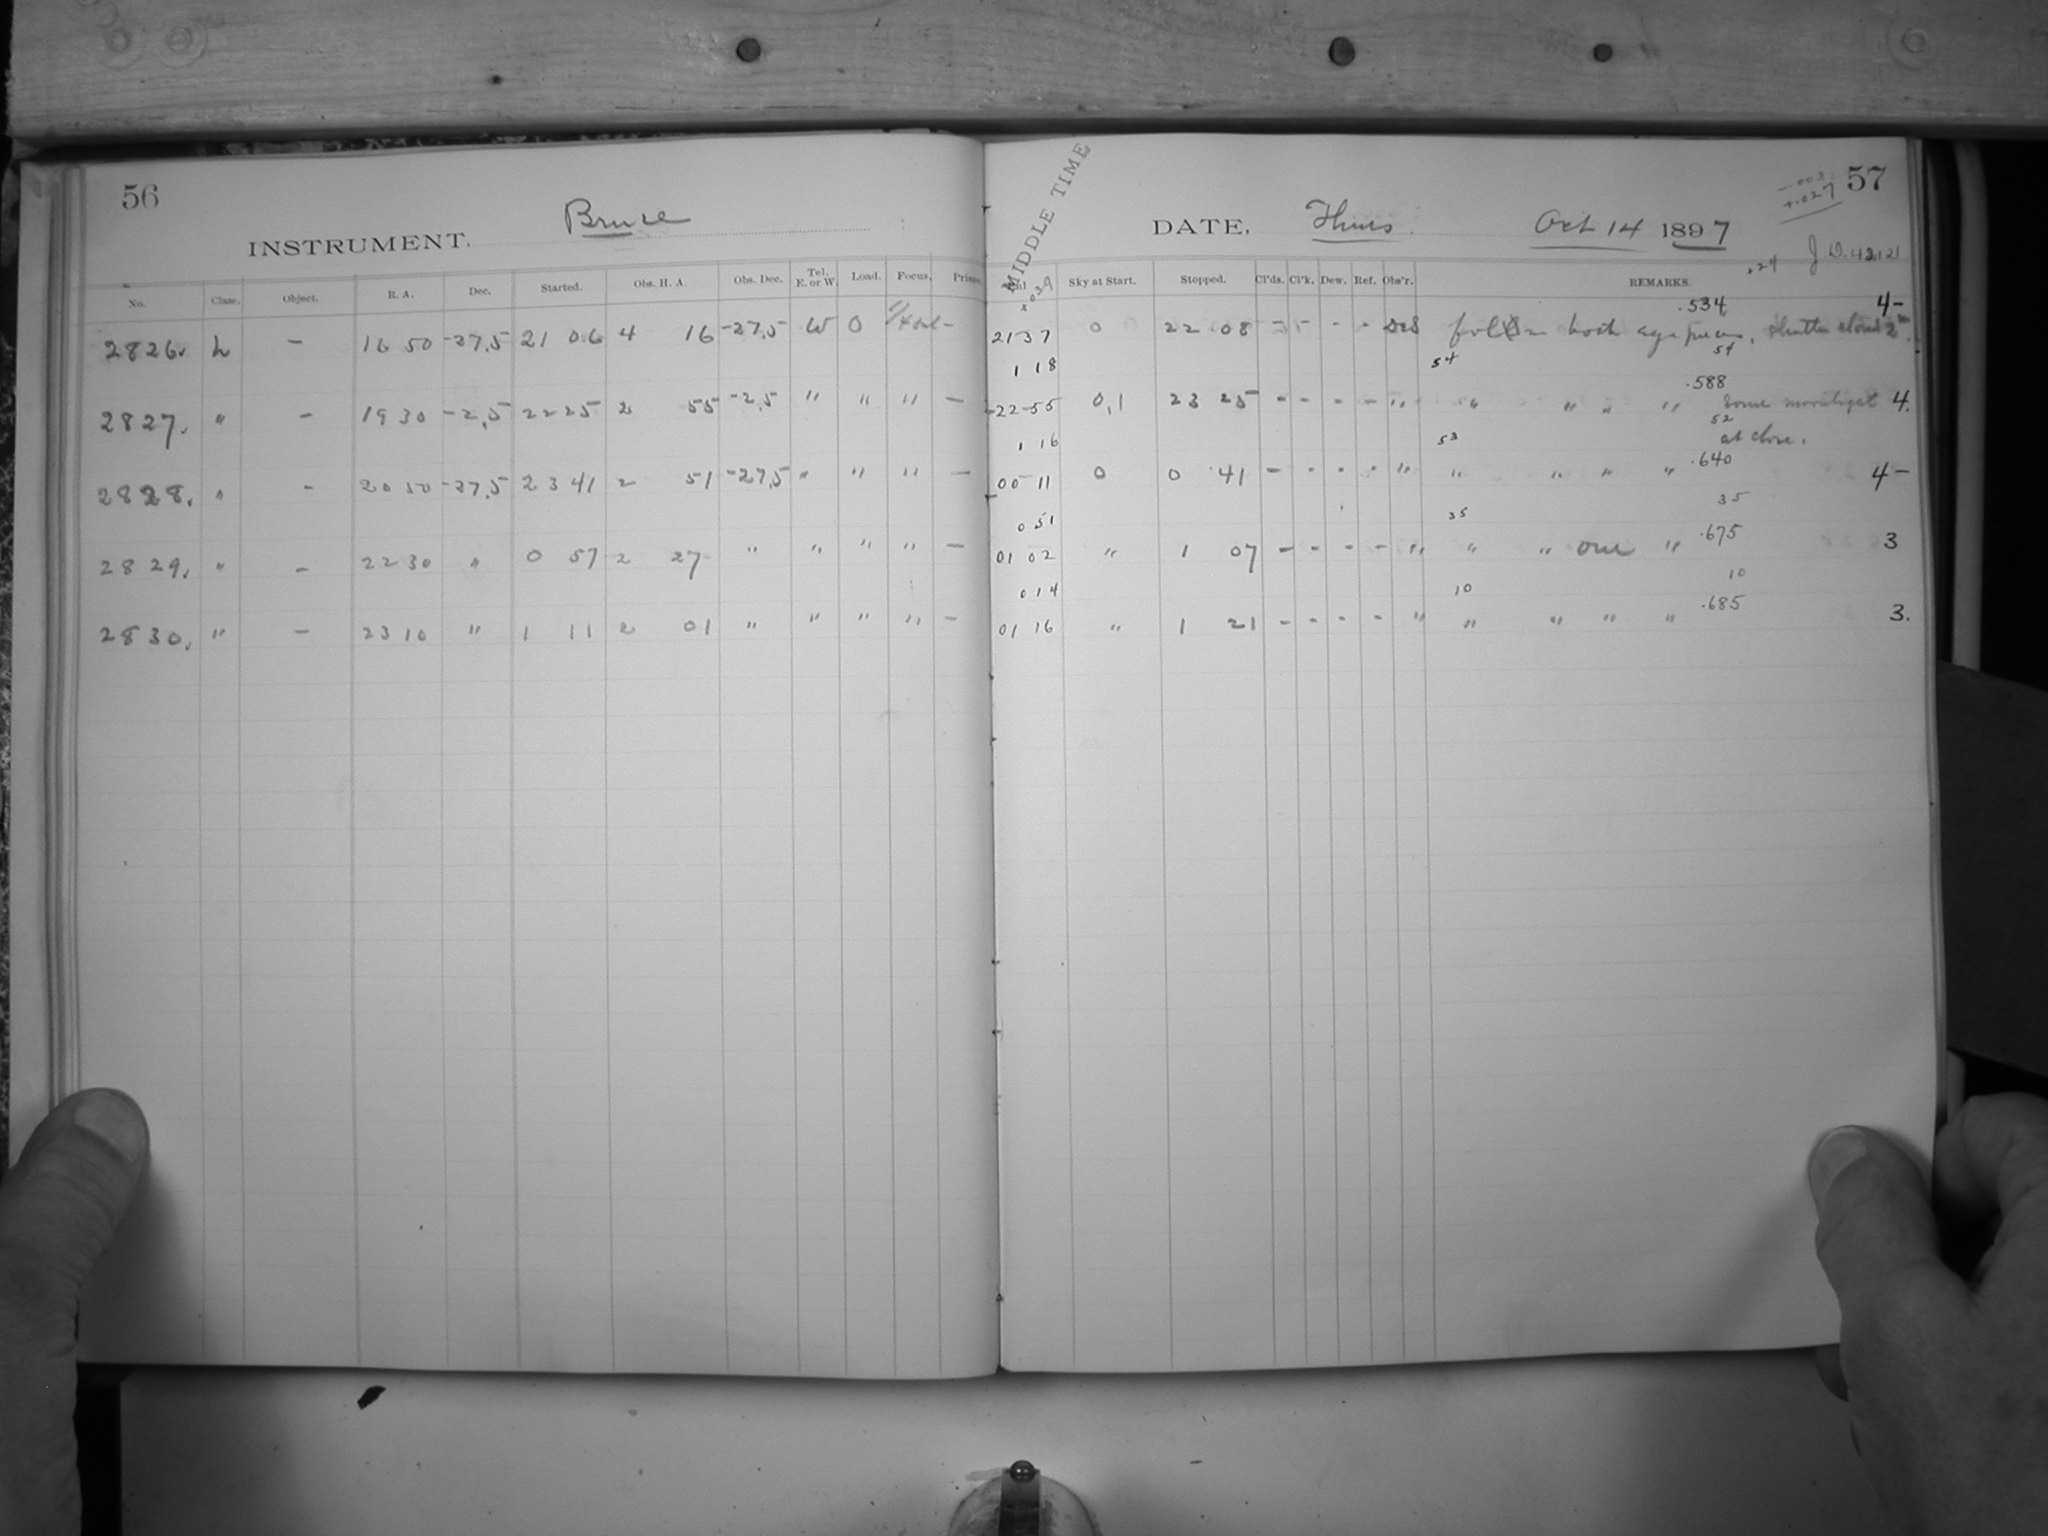 56
INSTRUMENT, Bruce
No. Class. Object. R. A. Dec. Started. Obs. H. A. Obs. Dec. Tel. E. or W. Load. Focus.
2826. L – 16 50 -27.5 21 06 4 16 -27.5 W 0 –
2827. " – 19 30 -2.5 22 25 2 55 -2.5 " " " –
2828. " – 20 50 -27.5 23 41 2 51 -27.5 " " " –
2829. " – 22 30 " 0 57 2 27 " " " " –
2830. " – 23 10 " 1 11 2 01 " " " " –
MIDDLE TIME
-.003
+.027
57
DATE, Thurs. Oct 14 1897
+24 J.D. 42121
Sky at Start. Stopped. Cl'ds. Cl'k. Dew. Ref. Obs'r. REMARKS.
.534 4-
21 37 0 22 08 - - both eye pieces. Shutter closed 2m.
1 18 54 54
.588
22 55 0,1 23 25 - - - - " " " " " Some moonlight 4.
1 16 53 52
at close.
00 11 0 0 41 - - - - " " " " " .640 4-
0 51 35 35
01 02 " 1 07 - - - - " " " one " .675 3
0 14 10 10
01 16 " 1 21 - - - - " " " " " .685 3.